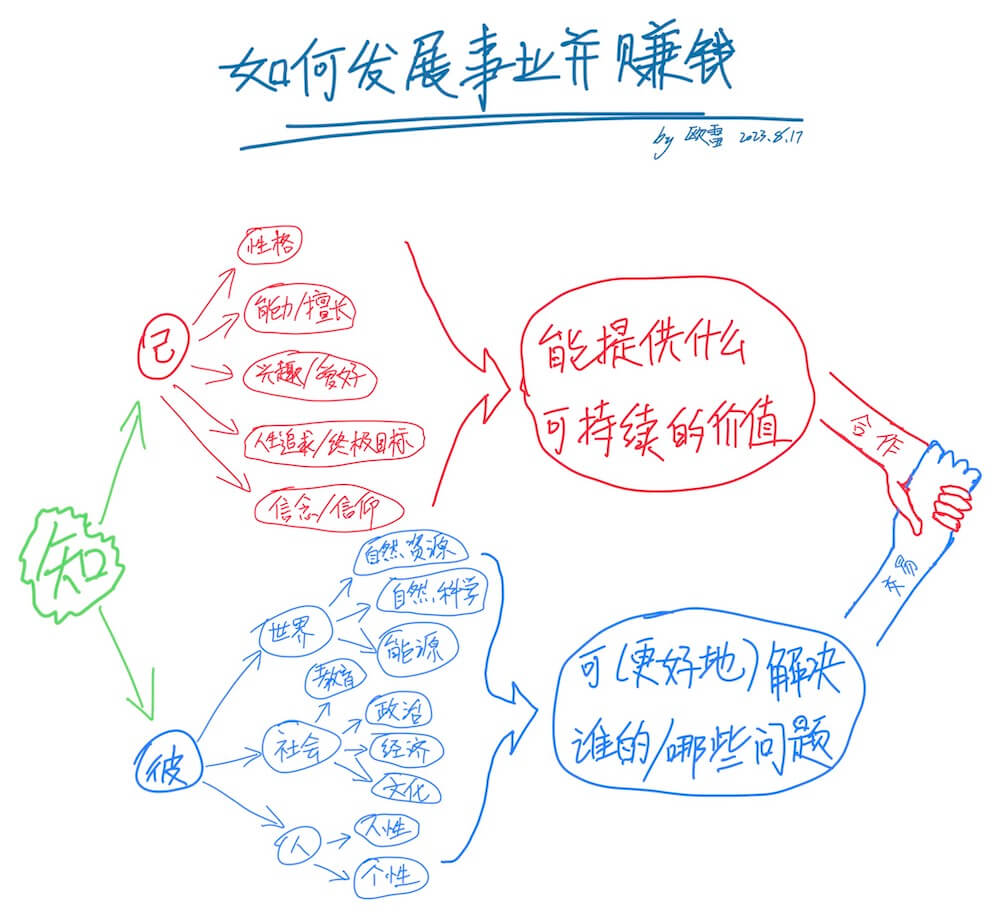 如何发展事业并赚钱
by 欧雷 2023.8.17
知
己
性格
能力/擅长
兴趣/爱好
人生追求/终极目标
信念/信仰
能提供什么
可持续的价值
合作
彼
世界
自然资源
自然科学
能源
社会
教育
政治
经济
文化
人
人性
个性
可(更好地)解决
谁的/哪些问题
交易